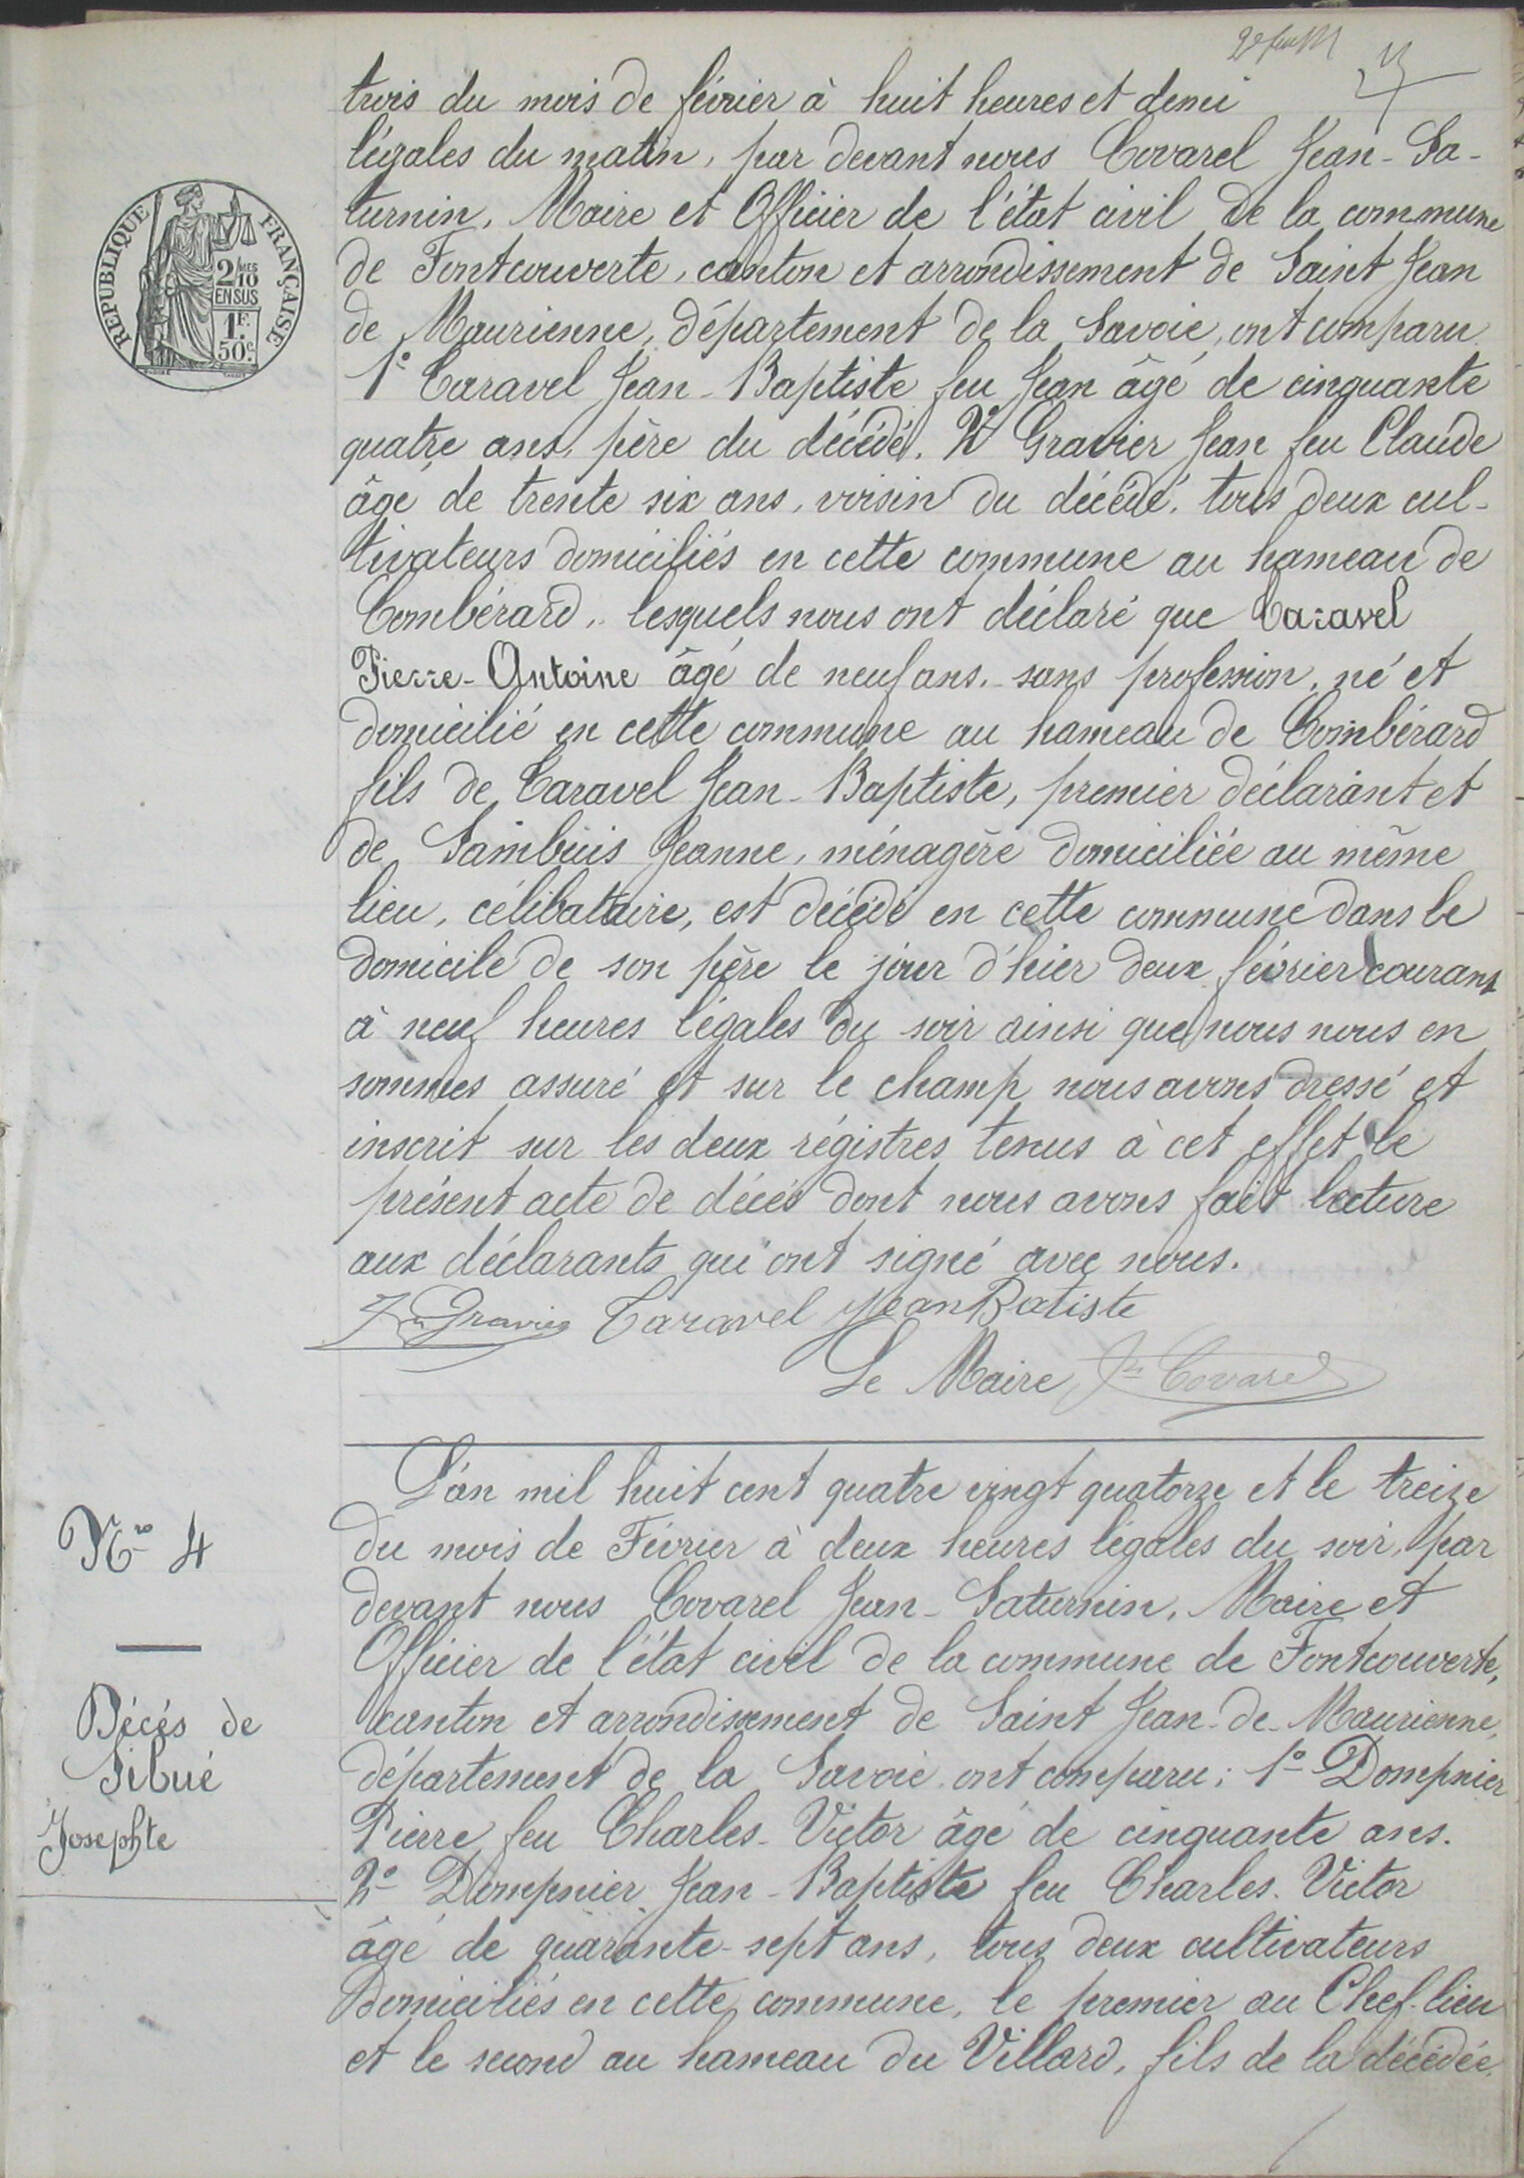 2e feuillet
trois du mois de février à huit heures et demi
légales du matin, par devant nous Covarel Jean-Sa-
turnin, Maire et Officier de l'état civil de la commune
de Fontcouverte, canton et arrondissement de Saint Jean
de Maurienne, département de la Savoie, ont comparu
1° Caravel Jean-Baptiste feu Jean âgé de cinquante
quatre ans, père du décédé. 2° Gravier Jean feu Claude
âgé de trente six ans, voisin du décédé, tous deux cul-
tivateurs domiciliés en cette commune au hameau de
Combérard, lesquels nous ont déclaré que Caravel
Pierre-Antoine âgé de neuf ans, sans profession, né et
domicilié en cette commune au hameau de Combérard
fils de Caravel Jean-Baptiste, premier déclarant et
de Sambuis Jeanne, ménagère domiciliée au même
lieu, célibataire, est décédé en cette commune dans le
domicile de son père le jour d'hier deux février courant
à neuf heures légales du soir ainsi que nous nous en
sommes assuré et sur le champ nous avons dressé et
inscrit sur les deux régistres tenus à cet effet le
présent acte de décés dont nous avons fait lecture
aux déclarants qui ont signé avec nous.
Jn Gravier Caravel Jean Batiste
Le Maire Jn Covarel
REPUBLIQUE FRANÇAISE
2/10MES
EN SUS
1F.
50c.
L'an mil huit cent quatre vingt quatorze et le treize
du mois de Février à deux heures légales du soir, par
devant nous Covarel Jean-Saturnin, Maire et
Officier de l'état civil de la commune de Fontcouverte,
canton et arrondissement de Saint Jean-de-Maurienne,
département de la Savoie ont comparu; 1° Dompnier
Pierre feu Charles-Victor âgé de cinquante ans.
2° Dompnier Jean-Baptiste feu Charles-Victor
âgé de quarante-sept ans, tous deux cultivateurs
domiciliés en cette commune, le premier au Chef-lieu
et le second au hameau du Villard, fils de la décédée,
Nro 4
Décés de
Sibué
Josephte